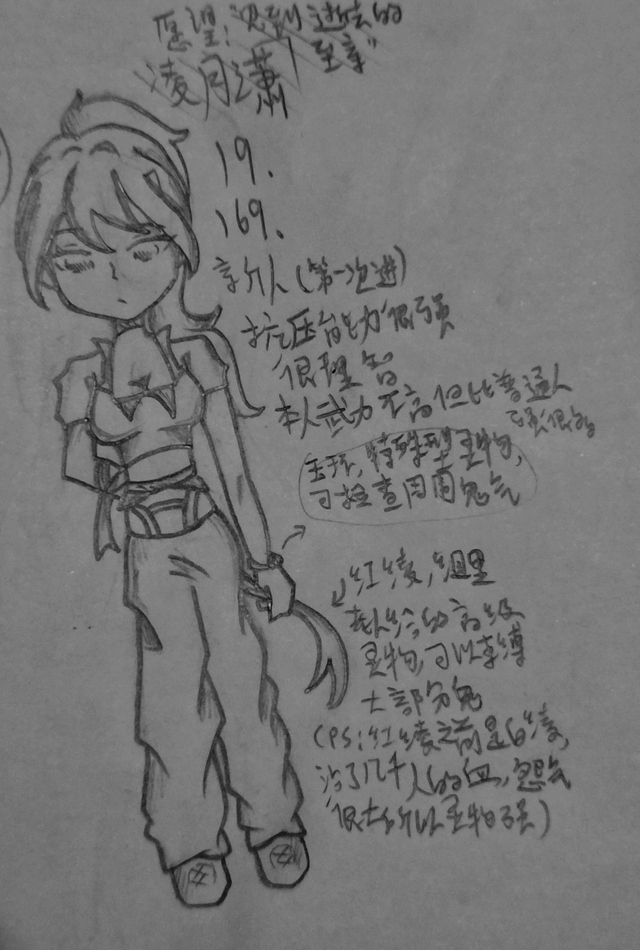 愿望：见到逝去的
凌月潇 至亲
19.
169.
言介人(第一次进)
抗压能力很强
很理智
本人武力不高但比普通人
强很多
玉环，特殊型灵物，
可检查周围鬼气
红绫，组里
老人给的高级
灵物，可以束缚
大部分鬼
(PS：红绫之前是白绫，
沾了几千人的血，怨气
很大所以灵物强)